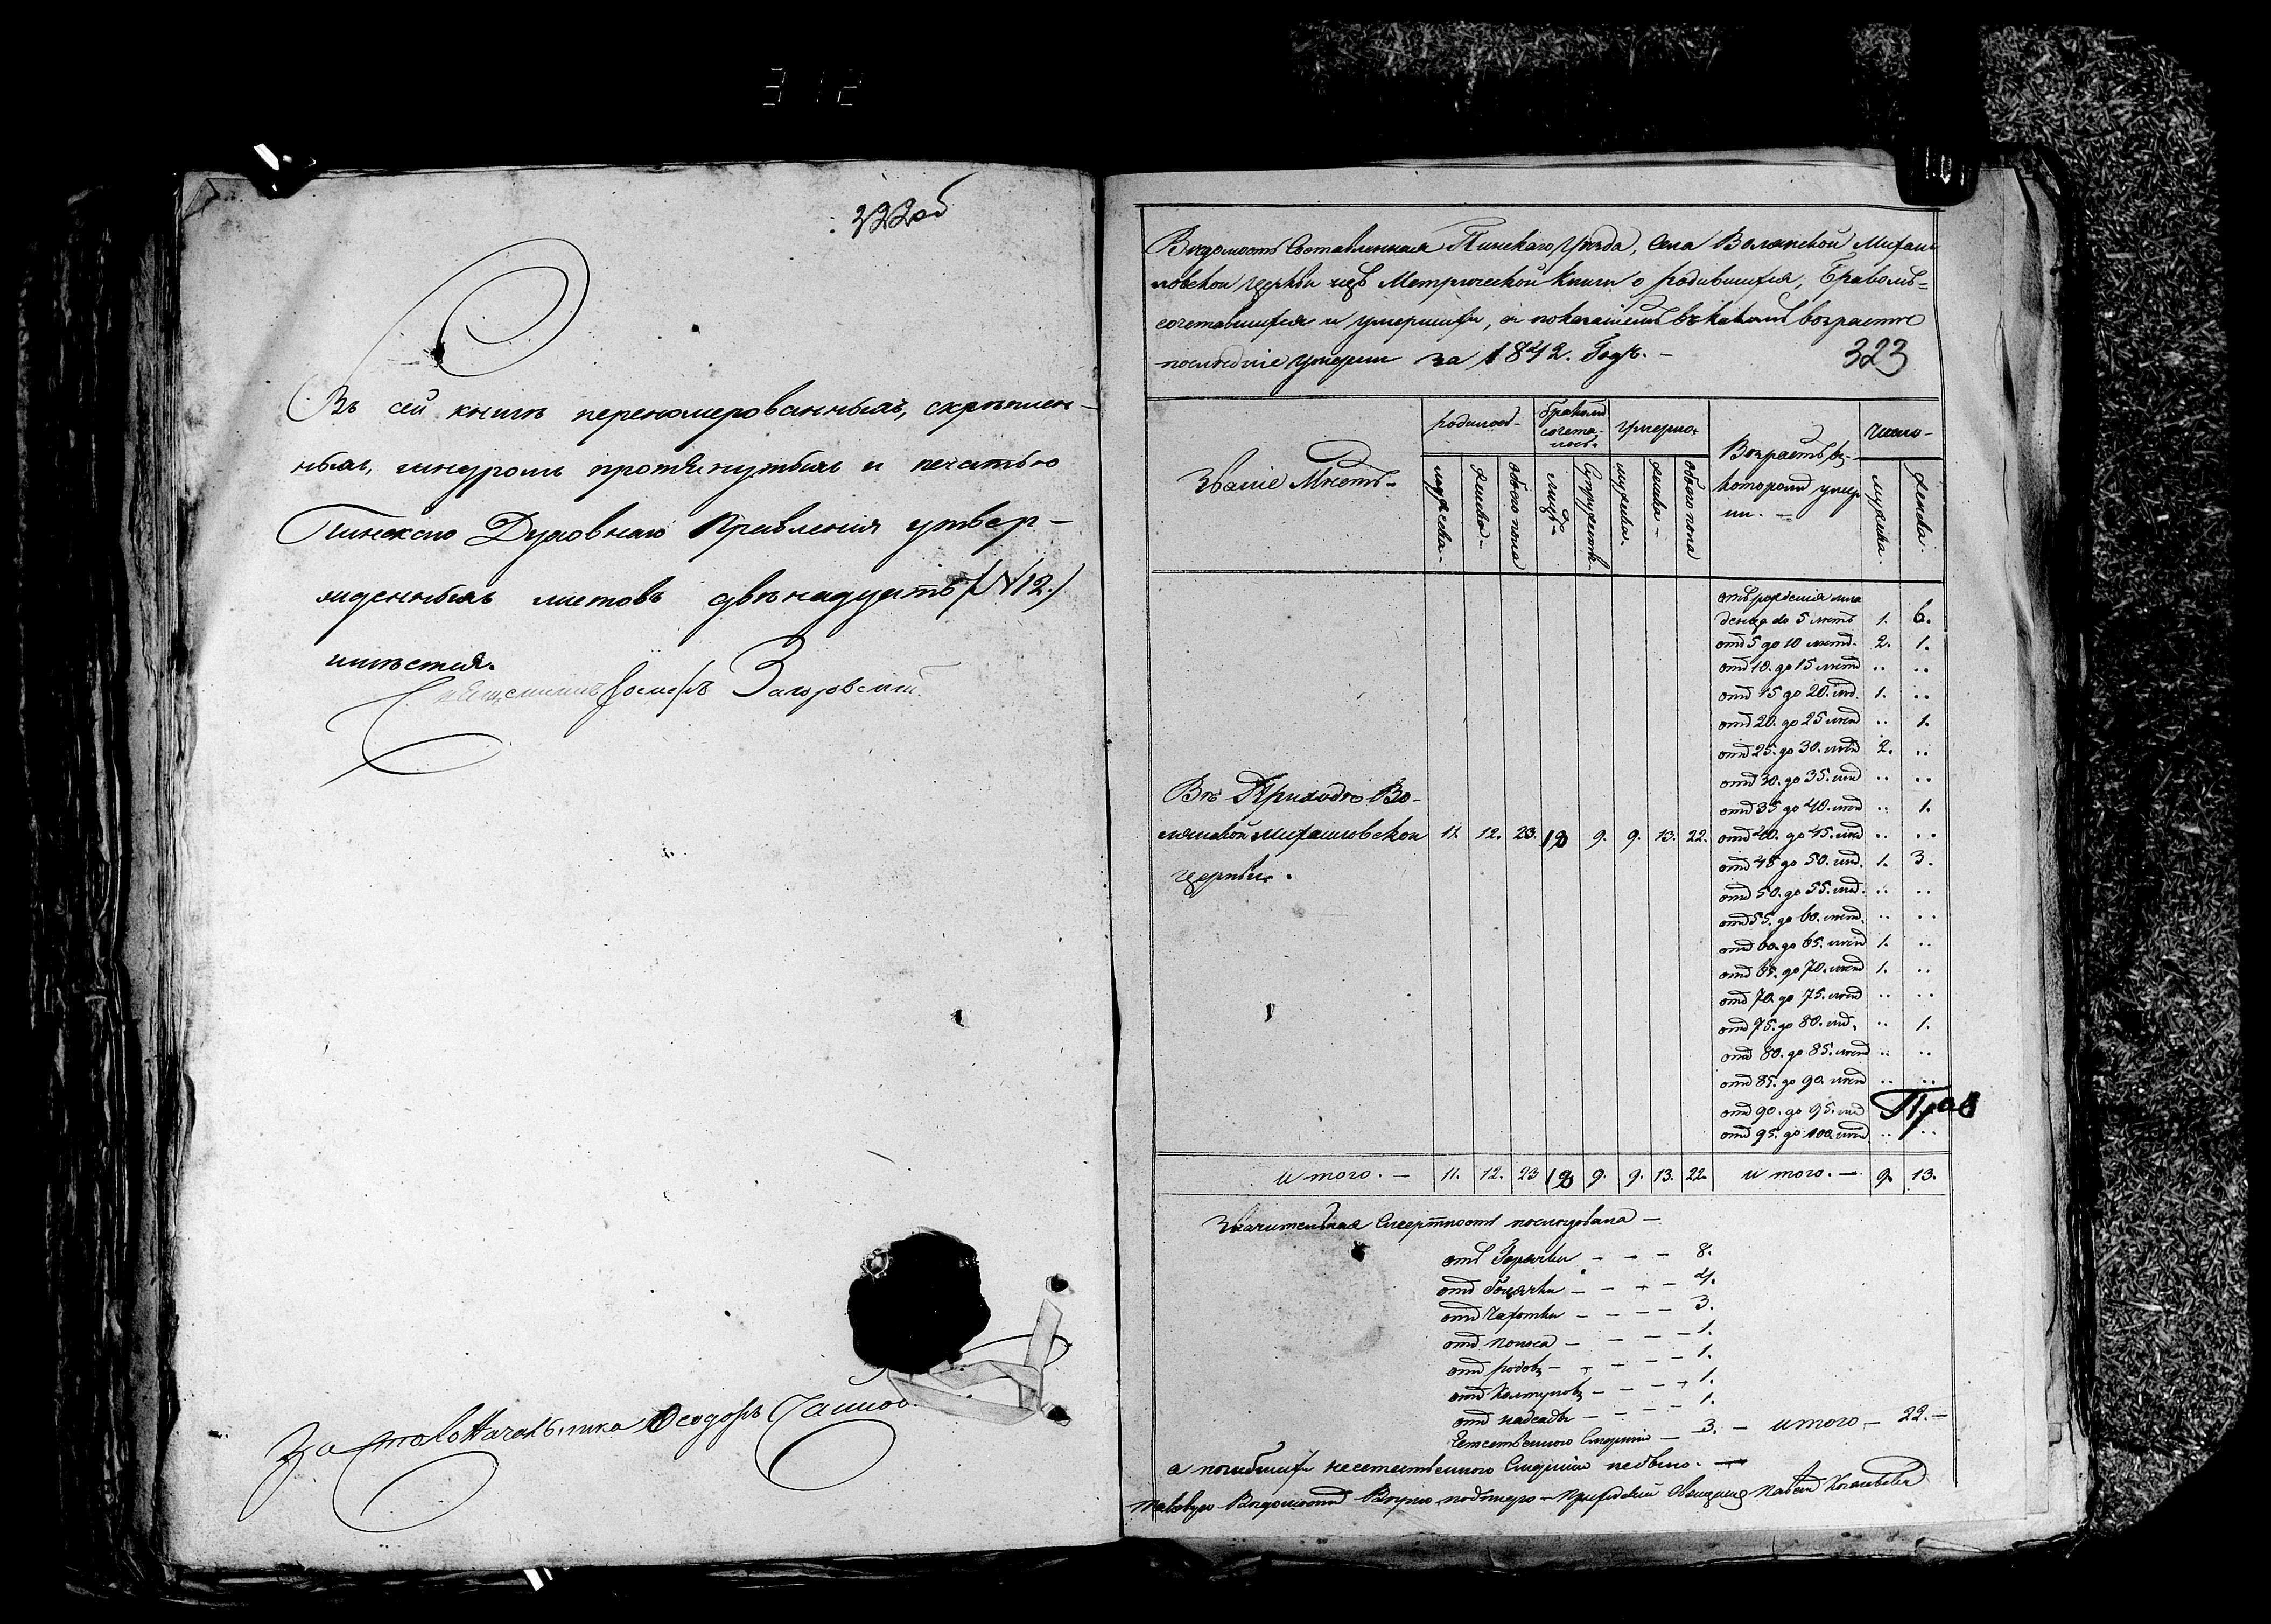 312
322об
Въ сей книгѣ переномерованныхъ, скрѣплен-
ныхъ, шнуромъ протянутыхъ и печатью
Пинскаго Духовнаго Правленія утвер-
жденныхъ листовъ двѣнадцать (N12.)
имѣется.
Священникъ Іосифъ Загоровскій
За столоначальника Ѳеодоръ
Вѣдомость Составленная Пинскаго Уѣзда, Села Волянской Михаи-
ловской Церкви изъ Метрической Книги о родившихся, Бракомъ=
сочетавшихся и умершихъ, съ показаніемъ въ какомъ возрастѣ
послѣдніе умерли за 1842. Годъ. –
323
Званіе Мѣстъ-
родилось-
бракомъ сочета-лось.
умерло.
Возрастъ въ которомъ умерли. –
число-
мужска-
женска-
обоего пола
лицъ-
Супружест.
мужска.
женска-
обоего пола
мужска.
женска.
отъ рожденія мла
денца до 5 лѣтъ 1. 6.
отъ 5 до 10 лѣтъ. 2. 1.
отъ 10. до 15 лѣтъ .. ..
отъ 15 до 20. лѣт. 1. ..
отъ 20. до 25 лѣтъ .. 1.
отъ 25. до 30. лѣтъ 2. ..
отъ 30. до 35. лѣтъ .. ..
отъ 35 до 40. лѣтъ .. 1.
Въ Приходѣ Во-
лянской Михаиловской 11. 12. 23. 18 9. 9. 13. 22. отъ 40. до 45. лѣтъ .. ..
церкви.
отъ 45 до 50. лѣт. 1. 3.
отъ 50. до 55. лѣт. .. ..
отъ 55. до 60. лѣтъ. .. ..
отъ 60. до 65. лѣтъ 1. ..
отъ 65. до 70. лѣтъ 1. ..
отъ 70. до 75. лѣтъ .. ..
отъ 75. до 80. лѣт. .. 1.
отъ 80. до 85. лѣтъ .. ..
отъ 85. до 90. лѣтъ .. ..
отъ 90. до 95. лѣт
отъ 95. до 100. лѣтъ .. ..
И того. – 11. 12. 23 18 9. 9. 13. 22. И того. – 9. 13.
Значительная Смертность послѣдовала –
отъ Горячки – – – 8.
отъ – – – – 4.
отъ Чахотки – – – – 3.
отъ Поноса – – – – 1.
отъ родовъ – – – – 1.
отъ Колтуновъ – – – – 1.
отъ надсады – – – – 1.
Естественною Смертію – 3. – итого – 22. –
а погибшихъ неестественною Смертію небыло. –
Таковую Вѣдомость Вѣрно подписую – Приходскій Священ. Павелъ